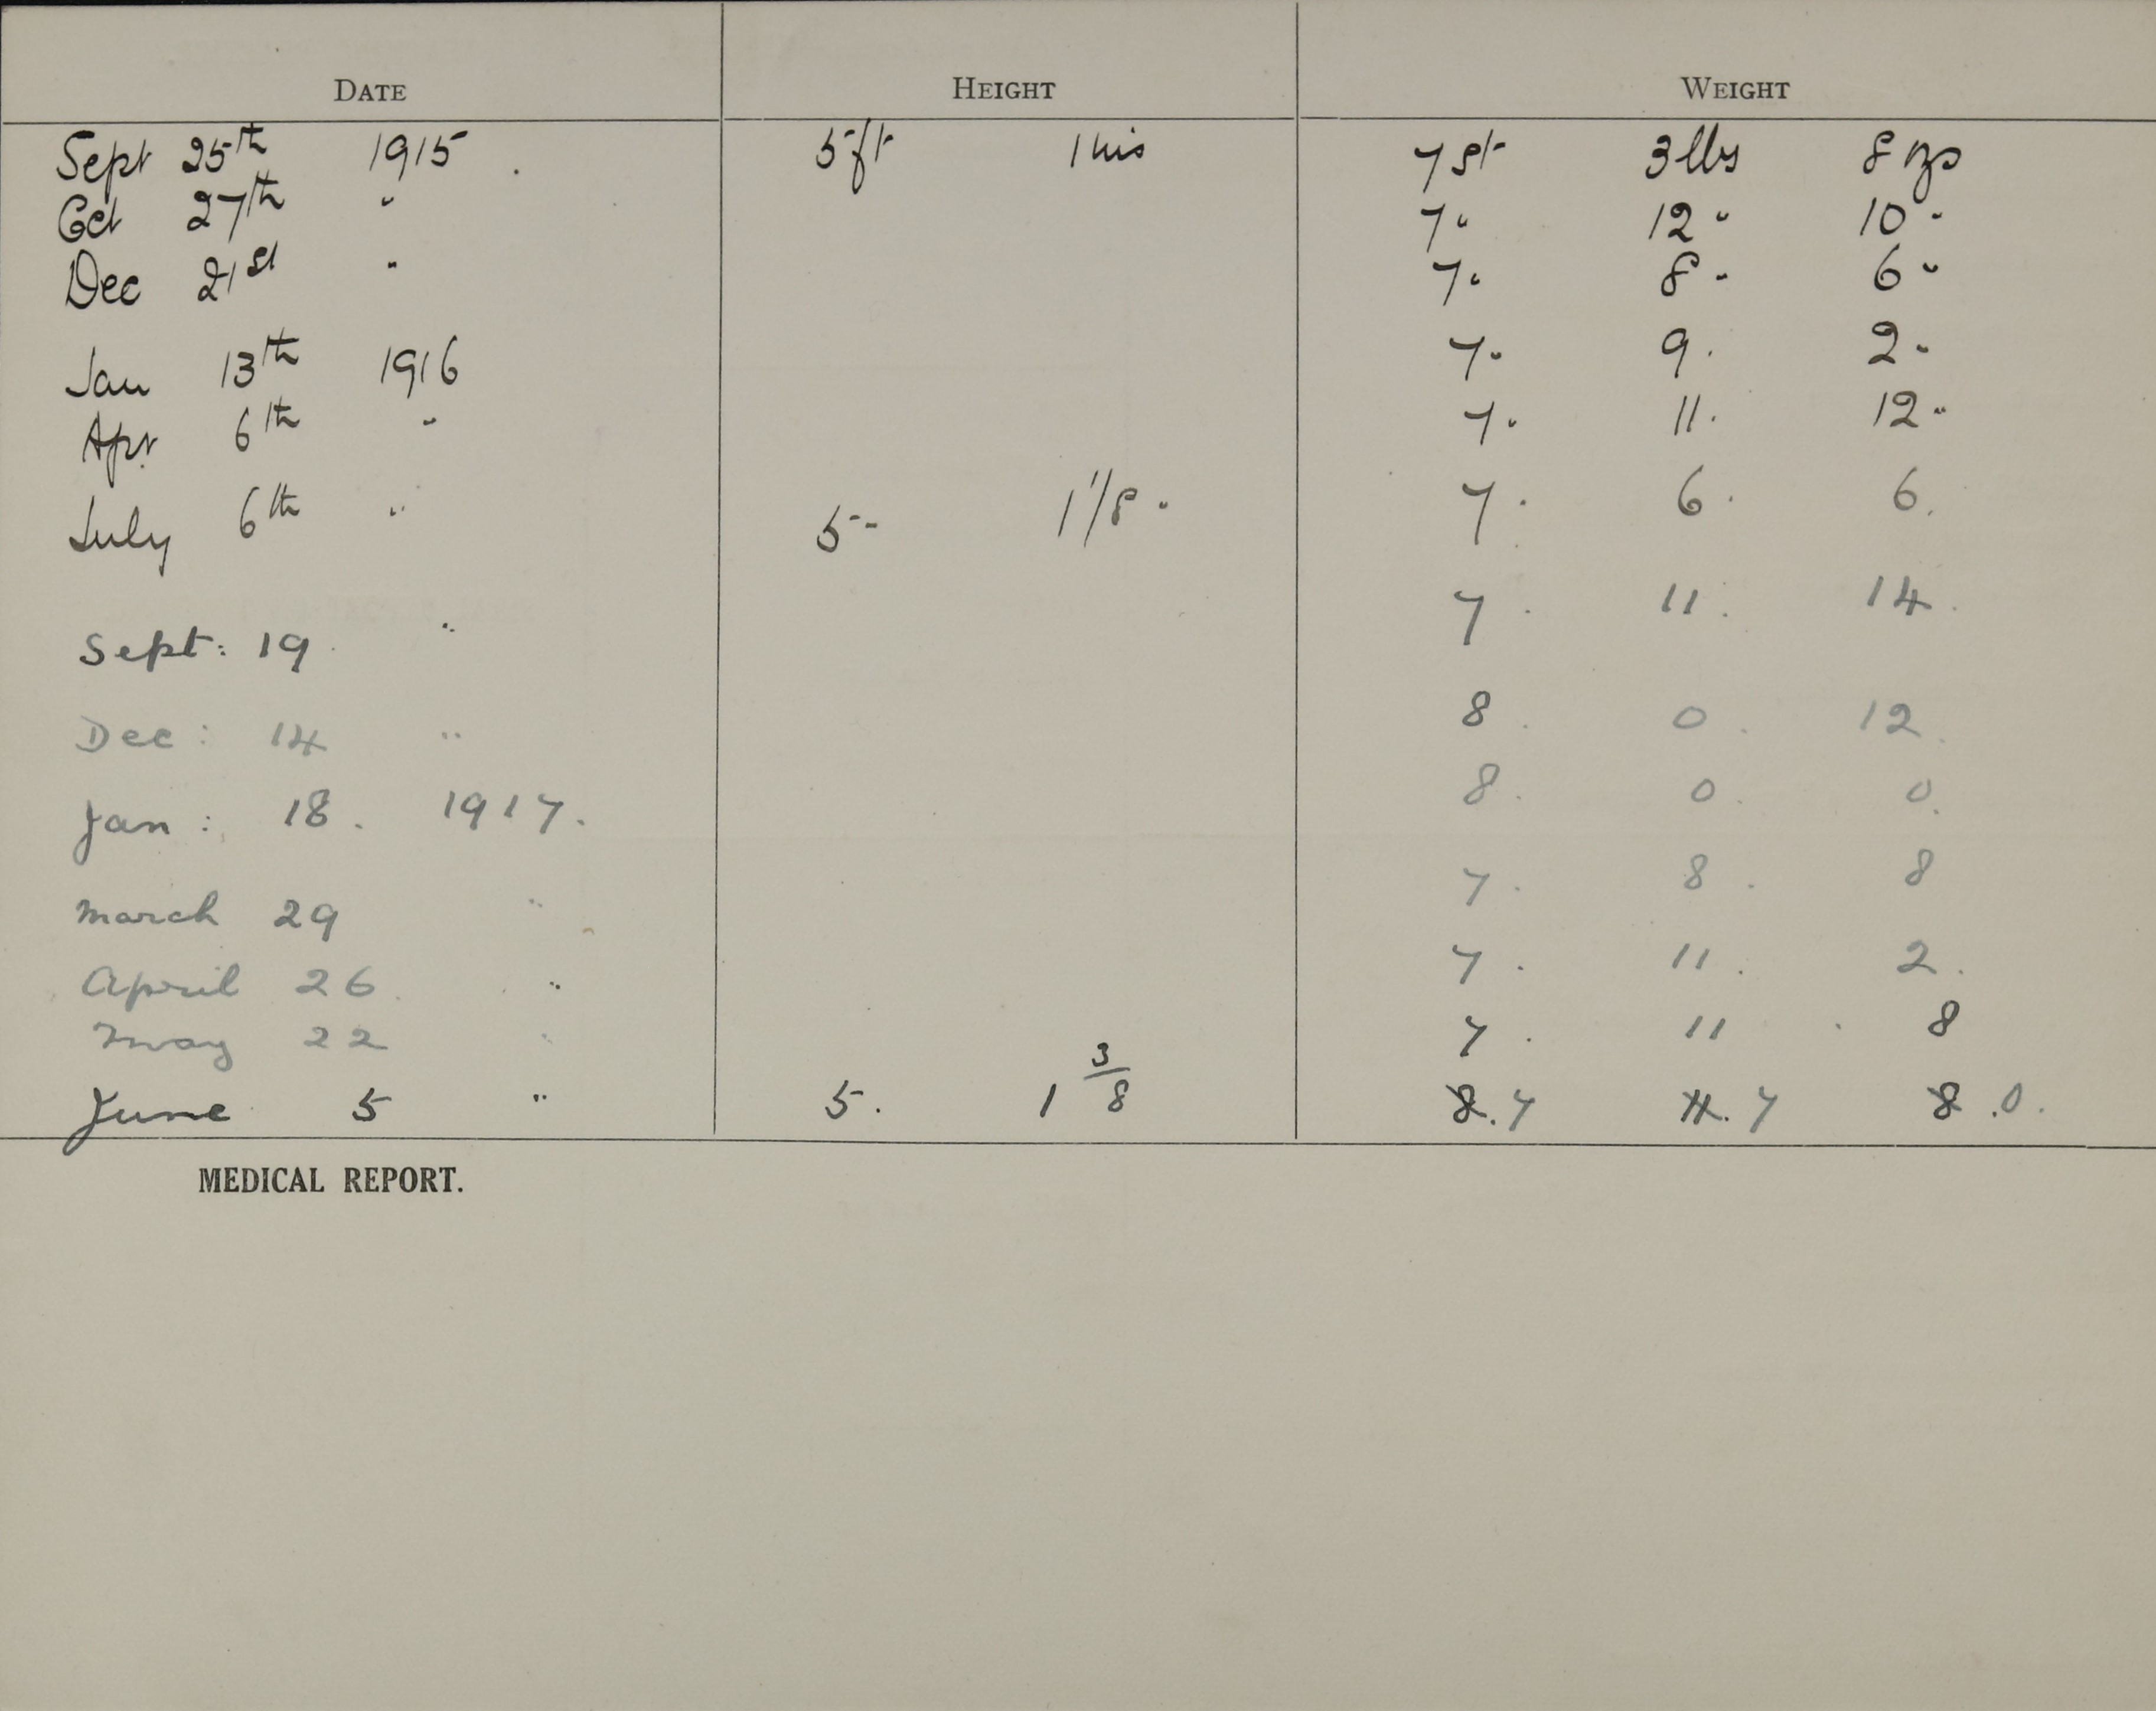 DATE HEIGHT WEIGHT
Sept 25th 1915. 5ft 1 ins 7 st 3 lbs 8 ozs
Oct 27th " 7 " 12 " 10 "
Dec 21st " 7 " 8 " 6 "
Jan 13th 1916 7 " 9 . 2 "
Apr 6th " 7 " 11 . 12 "
July 6th " 5 - 1 1/8 " 7 . 6 . 6 .
Sept: 19 " 7 . 11 . 14 .
Dec: 14 " 8 . 0 . 12 .
Jan: 18. 1917. 8 . 0 . 0 .
March 29 " 7 . 8 . 8
April 26. " 7 . 11 . 2 .
May 22 " 7 . 11 . 8
June 5 " 5. 1 3/8 8. 7 11. 7 8 .0.
MEDICAL REPORT.